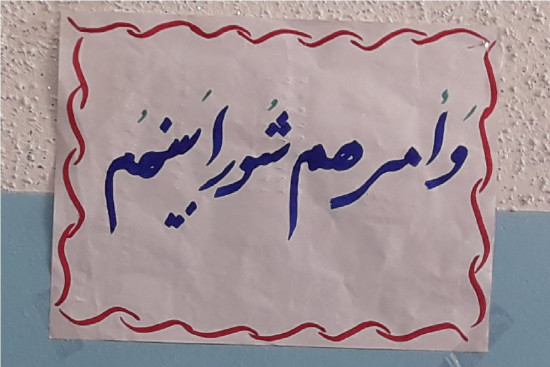 وَأمرهم شُورابَينهُم